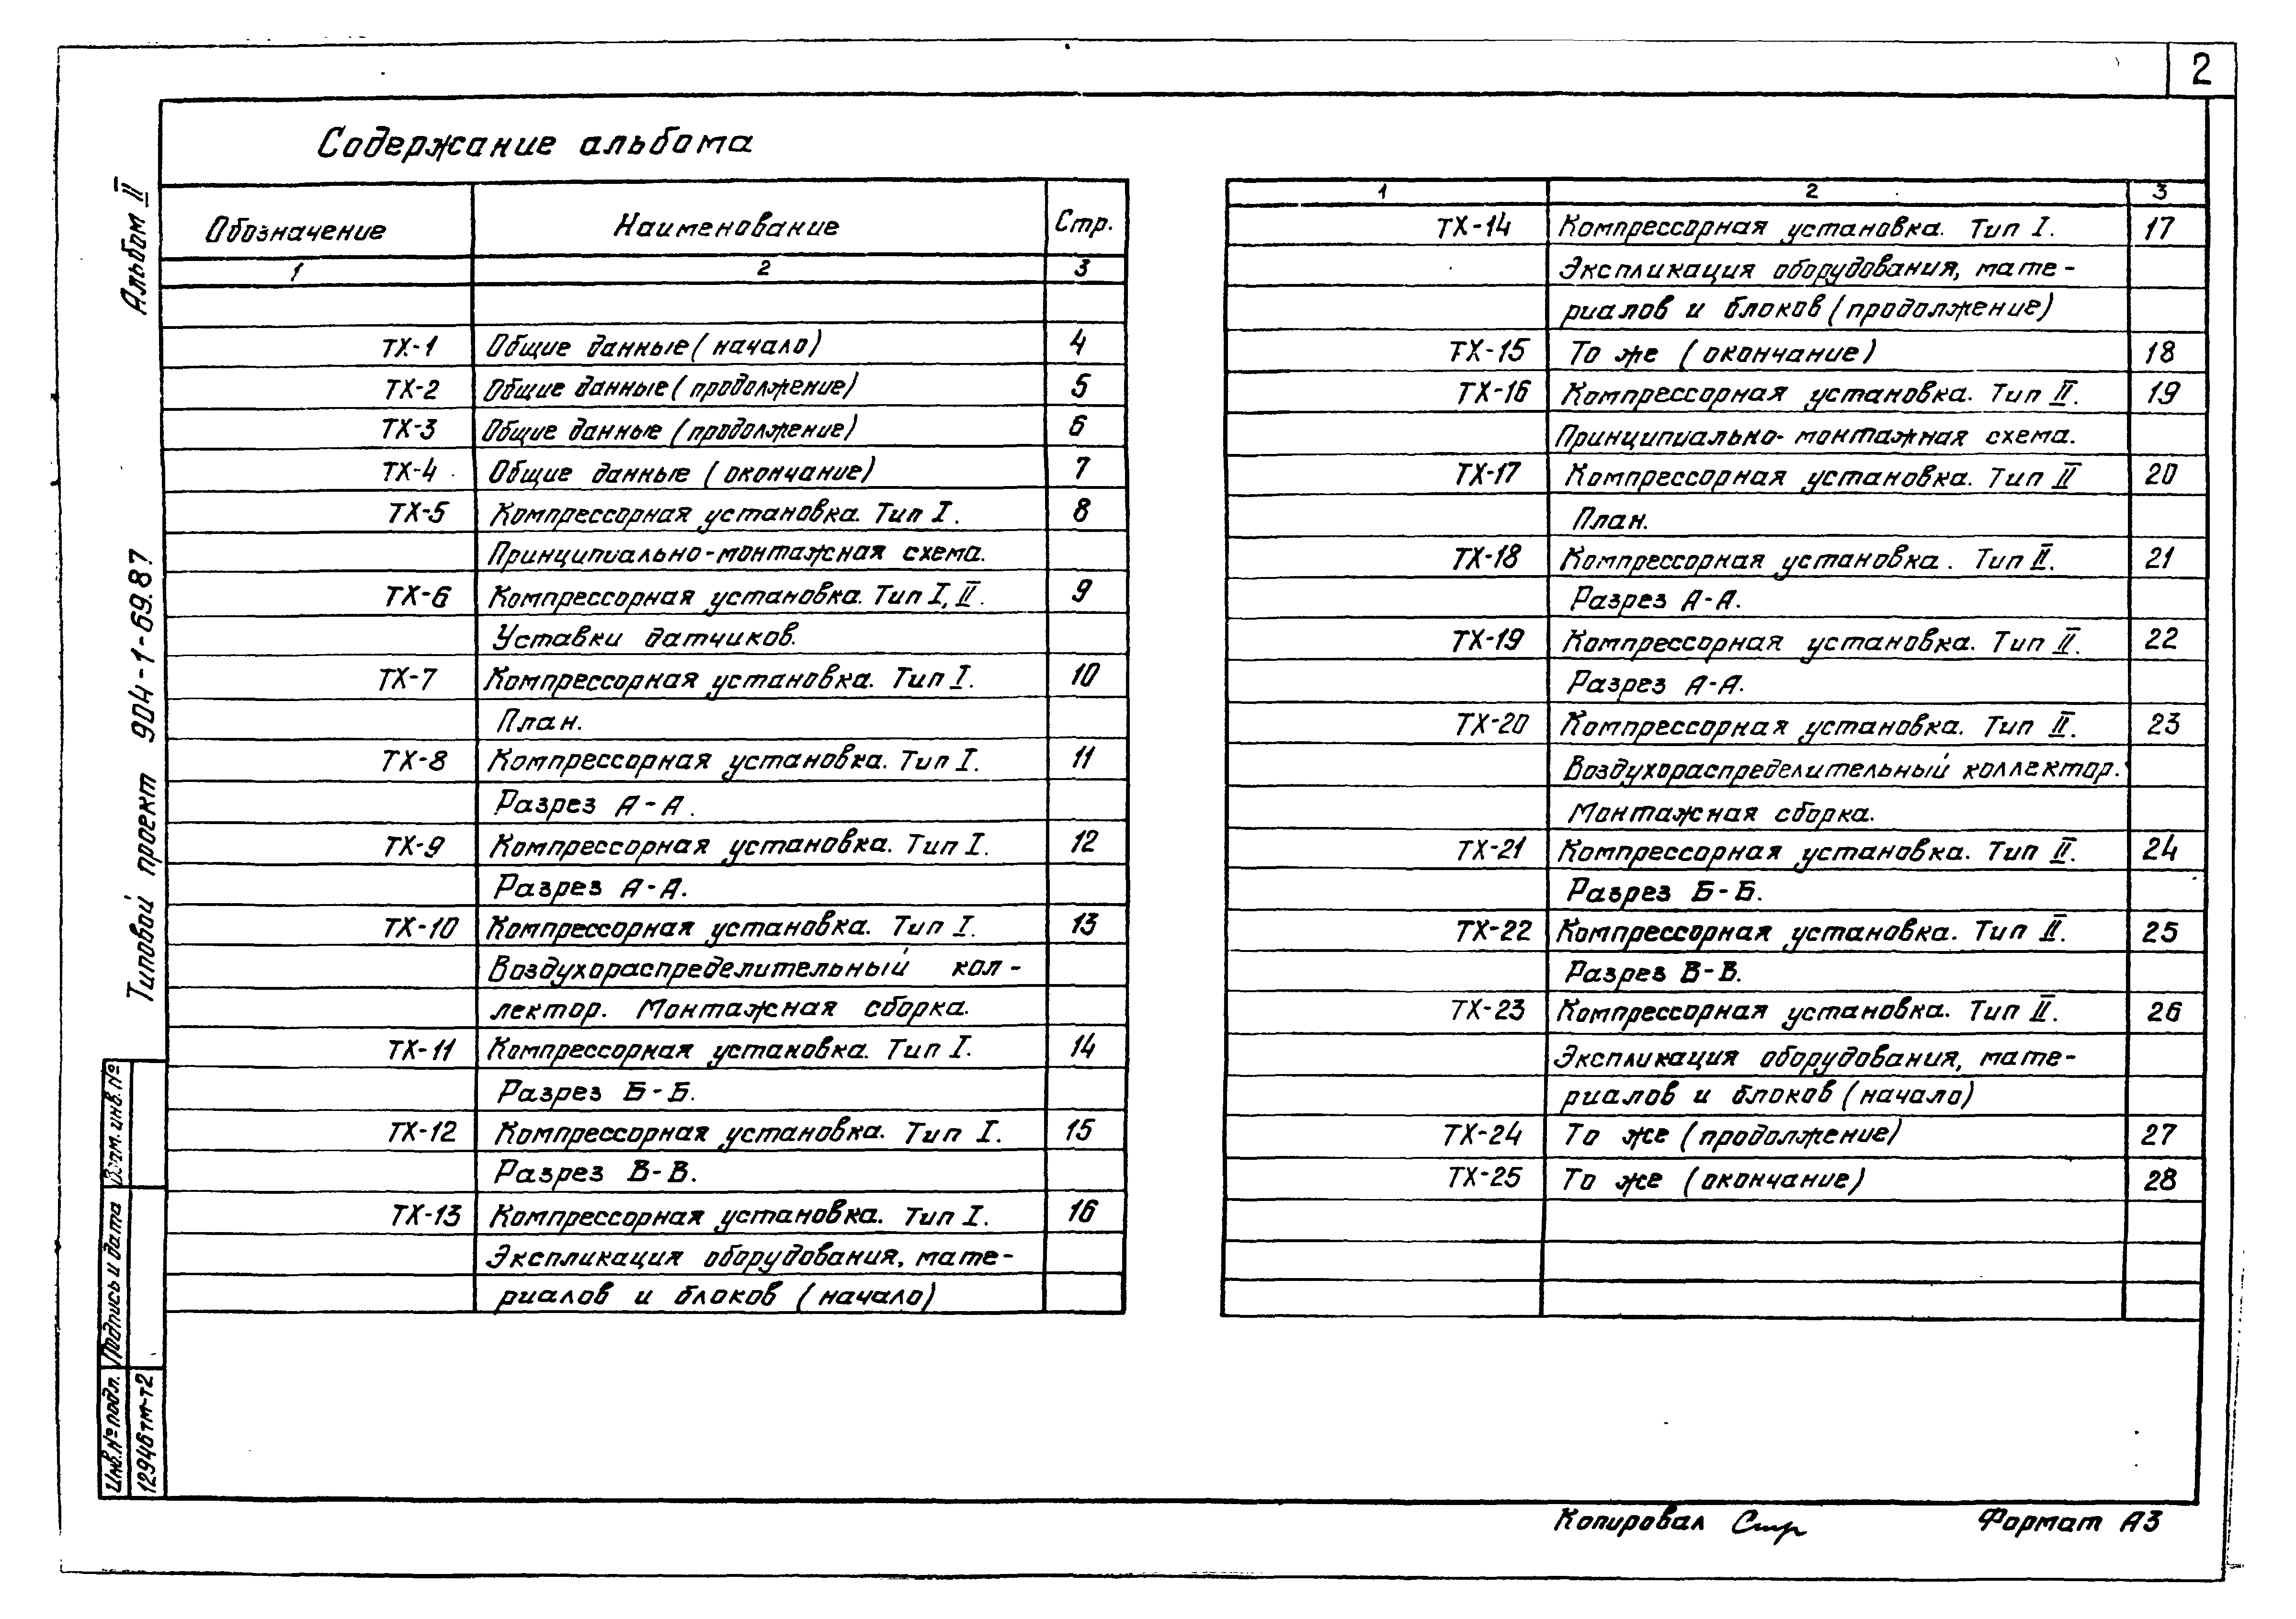 2
Содержание альбома
Альбом II
Типовой проект 904-1-69.87
Обозначение Наименование Стр.
1 2 3
ТХ-1 Общие данные (начало) 4
ТХ-2 Общие данные (продолжение) 5
ТХ-3 Общие данные (продолжение) 6
ТХ-4 Общие данные (окончание) 7
ТХ-5 Компрессорная установка. Тип I. 8
Принципиально-монтажная схема.
ТХ-6 Компрессорная установка. Тип I, II. 9
Уставки датчиков.
ТХ-7 Компрессорная установка. Тип I. 10
План.
ТХ-8 Компрессорная установка. Тип I. 11
Разрез А-А.
ТХ-9 Компрессорная установка. Тип I. 12
Разрез А-А.
ТХ-10 Компрессорная установка. Тип I. 13
Воздухораспределительный кол-
лектор. Монтажная сборка.
ТХ-11 Компрессорная установка. Тип I. 14
Разрез Б-Б.
ТХ-12 Компрессорная установка. Тип I. 15
Разрез В-В.
ТХ-13 Компрессорная установка. Тип I. 16
Экспликация оборудования, мате-
риалов и блоков (начало)
1 2 3
ТХ-14 Компрессорная установка. Тип I. 17
Экспликация оборудования, мате-
риалов и блоков (продолжение)
ТХ-15 То же (окончание) 18
ТХ-16 Компрессорная установка. Тип II. 19
Принципиально-монтажная схема.
ТХ-17 Компрессорная установка. Тип II 20
План.
ТХ-18 Компрессорная установка. Тип II. 21
Разрез А-А.
ТХ-19 Компрессорная установка. Тип II. 22
Разрез А-А.
ТХ-20 Компрессорная установка. Тип II. 23
Воздухораспределительный коллектор.
Монтажная сборка.
ТХ-21 Компрессорная установка. Тип II. 24
Разрез Б-Б.
ТХ-22 Компрессорная установка. Тип II. 25
Разрез В-В.
ТХ-23 Компрессорная установка. Тип II. 26
Экспликация оборудования, мате-
риалов и блоков (начало)
ТХ-24 То же (продолжение) 27
ТХ-25 То же (окончание) 28
Взам. инв. №
Подпись и дата
Инв. № подл.
12946тм-т2
Копировал
Формат А3